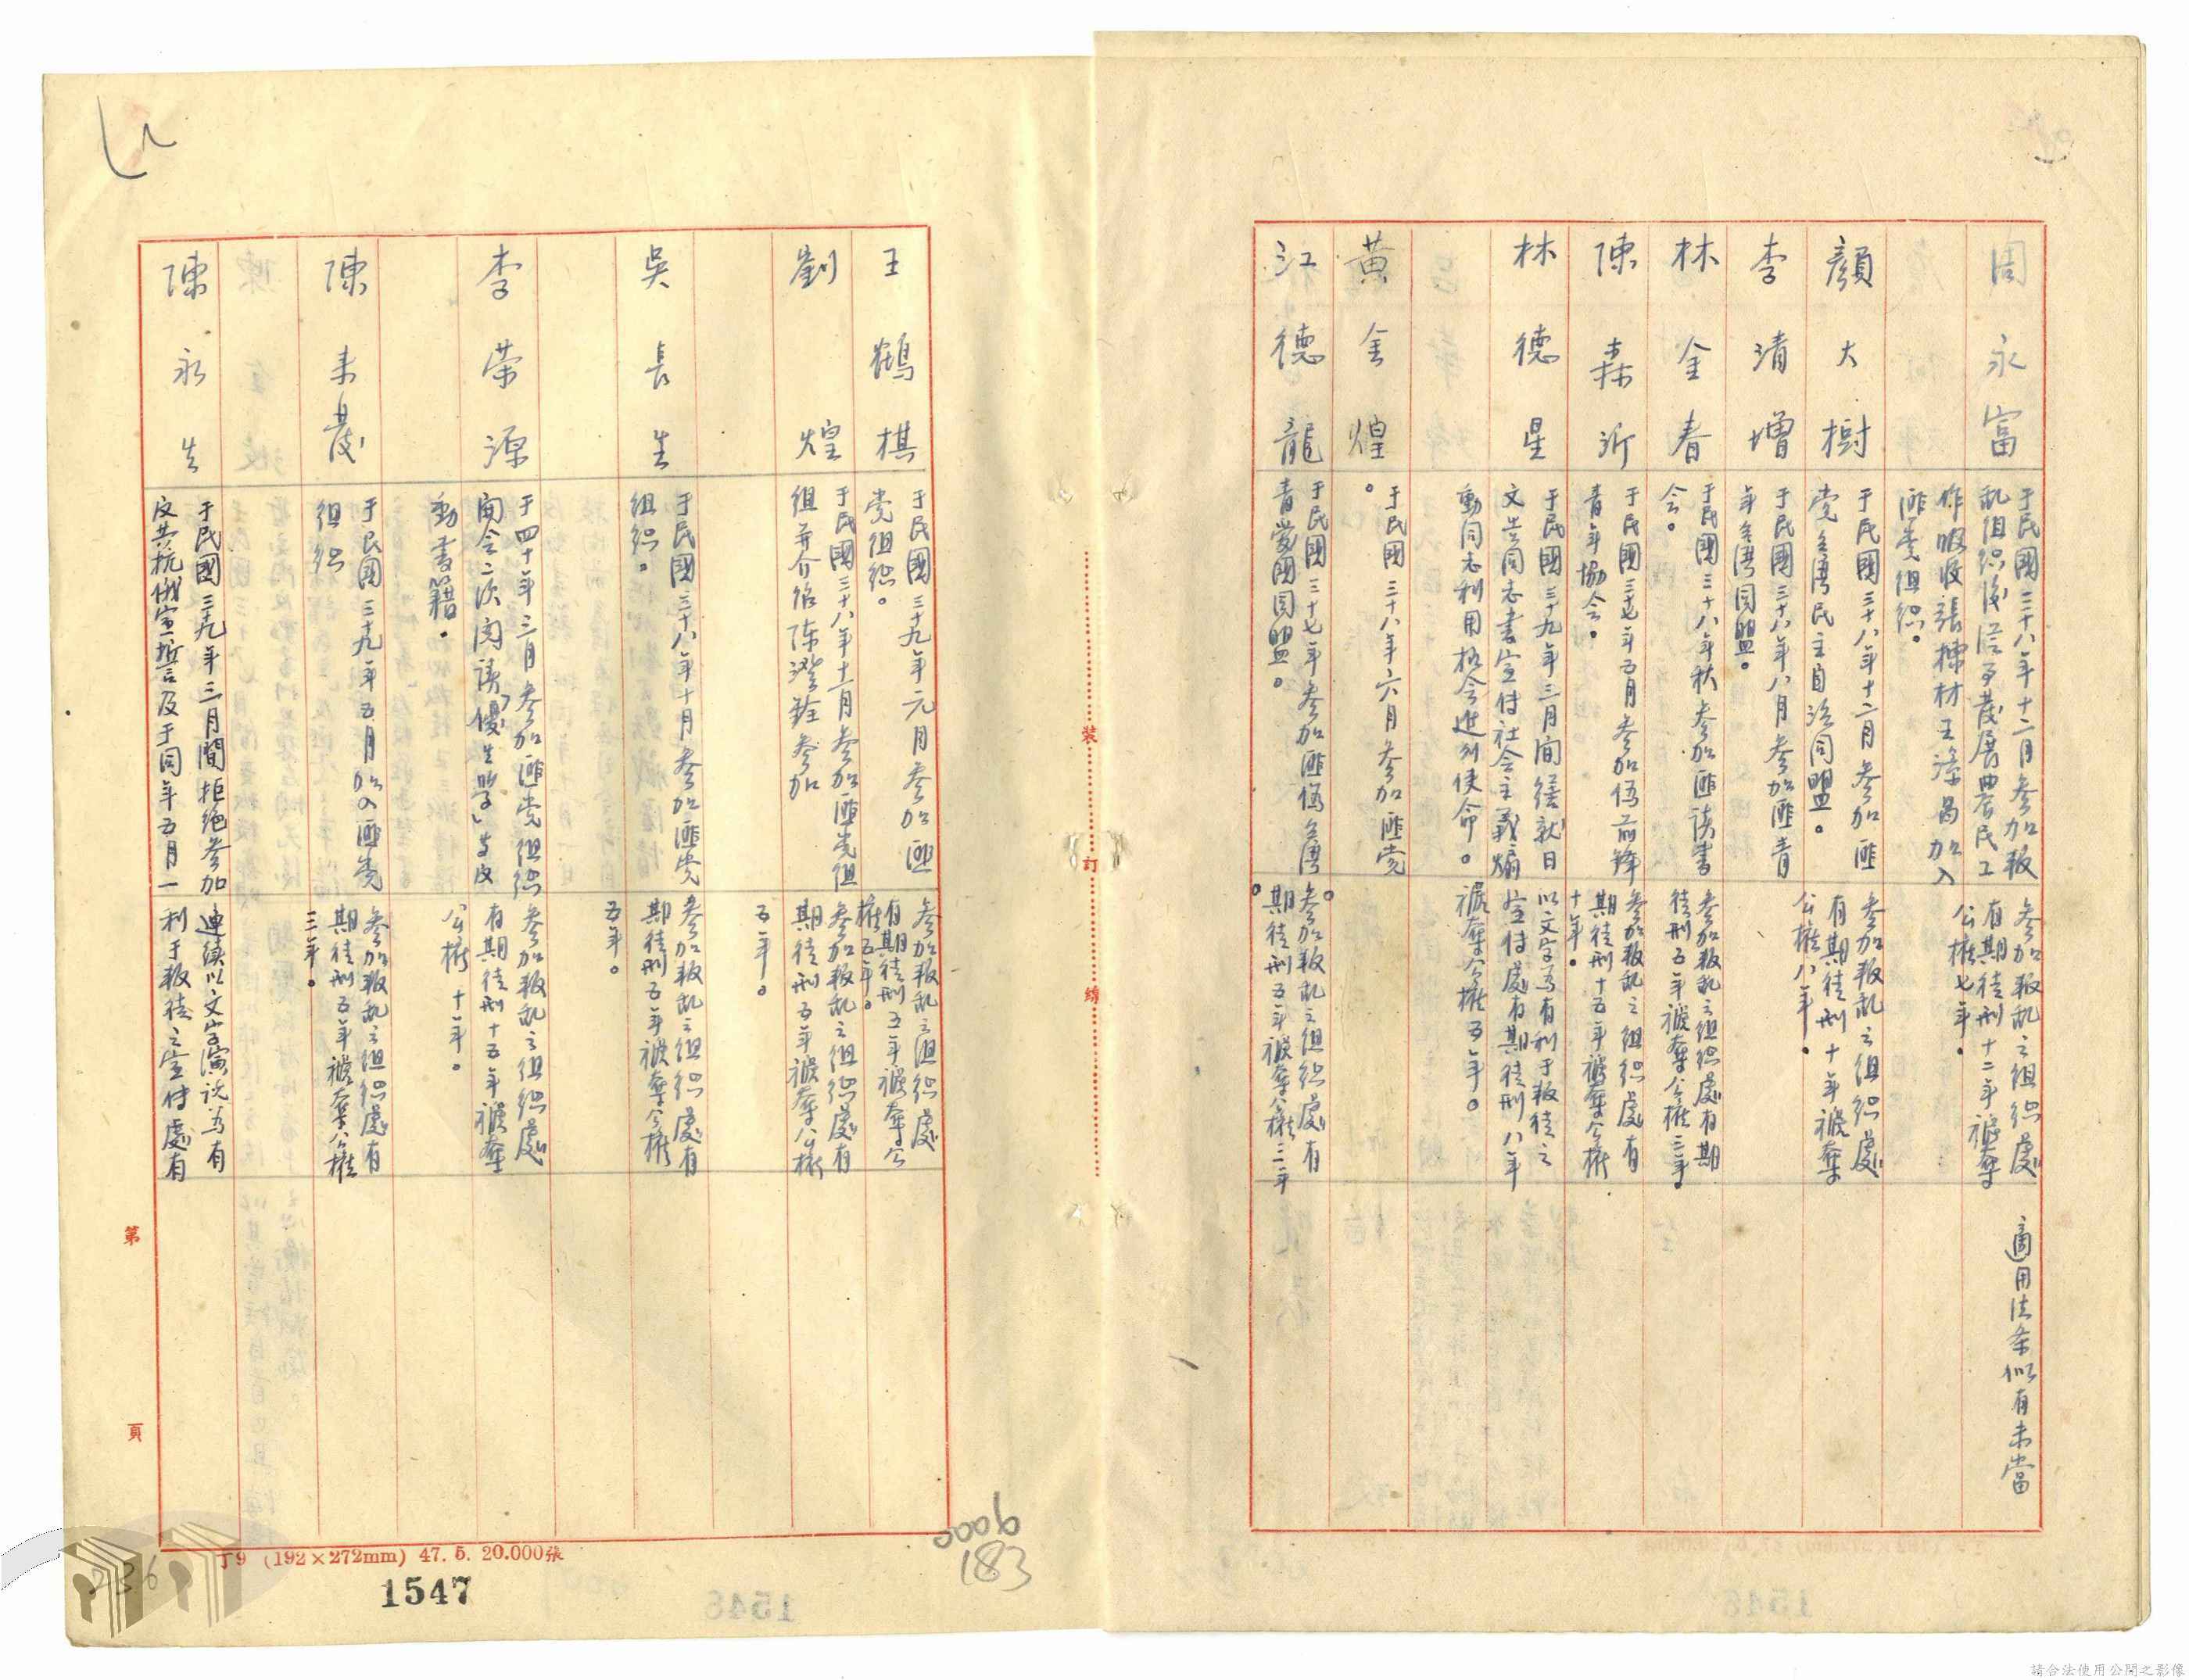 周永富
于民國三十八年十二月參加叛
乱組織後從事發展農民工
作吸收張棟材王添昌加入
匪黨組织。
參加叛乱之组织處
有期徒刑十二年褫奪
公權七年。
適用法条似有未當
顏大樹
于民國三十八年十二月參加匪
党台湾民主自治同盟。
參加叛乱之组织處
有期徒刑十年褫奪
公權八年。
李清增
于民國三十八年八月參加匪青
年台湾同盟。
林金春
于民國三十八年秋參加匪读書
会。
參加叛乱之组织處有期
徒刑五年褫奪公權三年。
陳森沂
于民國三七年五月參加偽前鋒
青年協会。
參加叛乱之组织處有
期徒刑十五年褫奪公權
十年。
林德星
于民國三十九年三月间往就日
文共同志書宣付社会主義煽
動同志利用机会進列使命。
以文字為有利于叛徒之
宣付處有期徒刑八年
褫奪公權五年。
黃金煌
于民國三十八年六月參加匪党
。
江德龍
于民國三十七年參加匪偽台湾
青愛國同盟。
參加叛乱之组织處有
期徒刑五年褫奪公權三年
。
王鶴棋
于民國三十九年元月參加匪
党组织。
參加叛乱之组织處
有期徒刑五年褫奪公
權五年。
劉煌
于民國三十八年十二月參加匪党组
组并介绍陈澄銓參加
參加叛乱之组织處有
期徒刑五年褫奪公權
五年。
吳長生
于民國三十八年十月參加匪党
组织。
參加叛乱之组织處有
期徒刑五年褫奪公權
五年。
李荣源
于四十年三月參加匪党组织
開会二次阅读「優生學」与反
動書籍。
參加叛乱之组织處
有期徒刑十五年褫奪
公權十年。
陳未發
于民國三十九年五月加入匪党
组织
參加叛乱之组织處有
期徒刑五年褫奪公權
三年。
陳永生
于民國三九年三月間拒绝參加
反共抗俄宣誓及于同年五月一
連續以文字演说為有
利于叛徒之宣付處有
裝
訂
線
第
頁
丁9 (192×272mm) 47. 5. 20.000張
1547
0006
183
236
請合法使用公開之影像